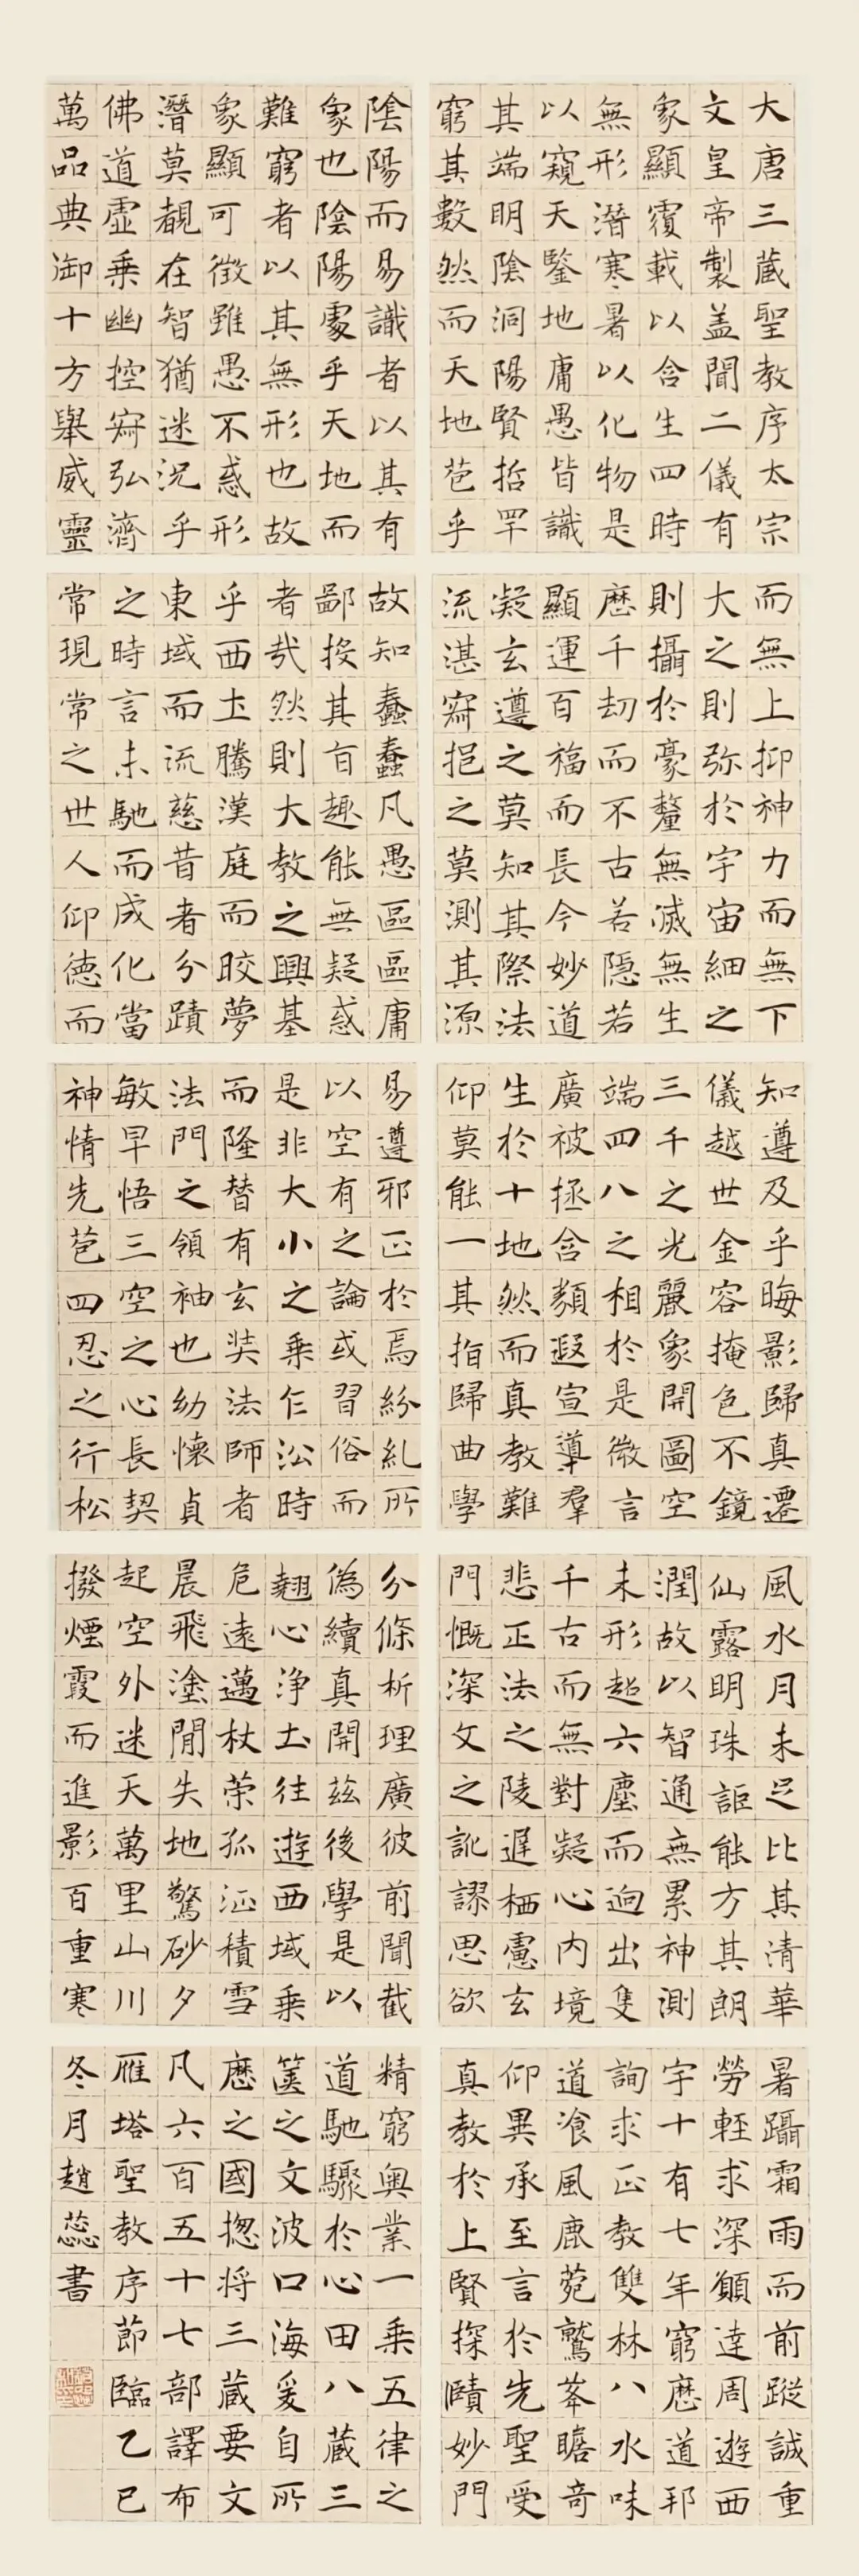 大唐三藏聖教序太宗
文皇帝製盖聞二儀有
象顯覆載以含生四時
無形潛寒暑以化物是
以窺天鑒地庸愚皆識
其端明陰洞陽賢哲罕
窮其數然而天地苞乎
陰陽而易識者以其有
象也陰陽處乎天地而
難窮者以其無形也故
象顯可徵雖愚不惑形
潛莫覩在智猶迷況乎
佛道虛乘幽控寂弘濟
萬品典御十方舉威靈
而無上抑神力而無下
大之則弥於宇宙細之
則攝於豪釐無滅無生
歷千劫而不古若隱若
顯運百福而長今妙道
凝玄遵之莫知其際法
流湛寂挹之莫測其源
故知蠢蠢凡愚區區庸
鄙投其旨趣能無疑惑
者哉然則大教之興基
乎西土騰漢庭而皎夢
東域而流慈昔者分蹟
之時言未馳而成化當
常現常之世人仰德而
知遵及乎晦影歸真遷
儀越世金容掩色不鏡
三千之光麗象開圖空
端四八之相於是微言
廣被拯含類遐宣導羣
生於十地然而真教難
仰莫能一其指歸曲學
易遵邪正於焉紛糺所
以空有之論或習俗而
是非大小之乘乍沿時
而隆替有玄奘法師者
法門之領袖也幼懷貞
敏早悟三空之心長契
神情先苞四忍之行松
風水月未足比其清華
仙露明珠詎能方其朗
潤故以智通無累神測
未形超六塵而迥出隻
千古而無對凝心內境
悲正法之陵遲栖慮玄
門慨深文之訛謬思欲
分條析理廣彼前聞截
偽續真開茲後學是以
翹心淨土往遊西域乘
危遠邁杖策孤征積雪
晨飛塗閒失地驚砂夕
起空外迷天萬里山川
撥煙霞而進影百重寒
暑躡霜雨而前蹤誠重
勞輕求深願達周遊西
宇十有七年窮歷道邦
詢求正教雙林八水味
道湌風鹿菀鷲峯瞻奇
仰異承至言於先聖受
真教於上賢探賾妙門
精窮奧業一乘五律之
道馳驟於心田八藏三
篋之文波口海爰自所
歷之國揔將三藏要文
凡六百五十七部譯布
雁塔聖教序節臨乙巳
冬月趙蕊書